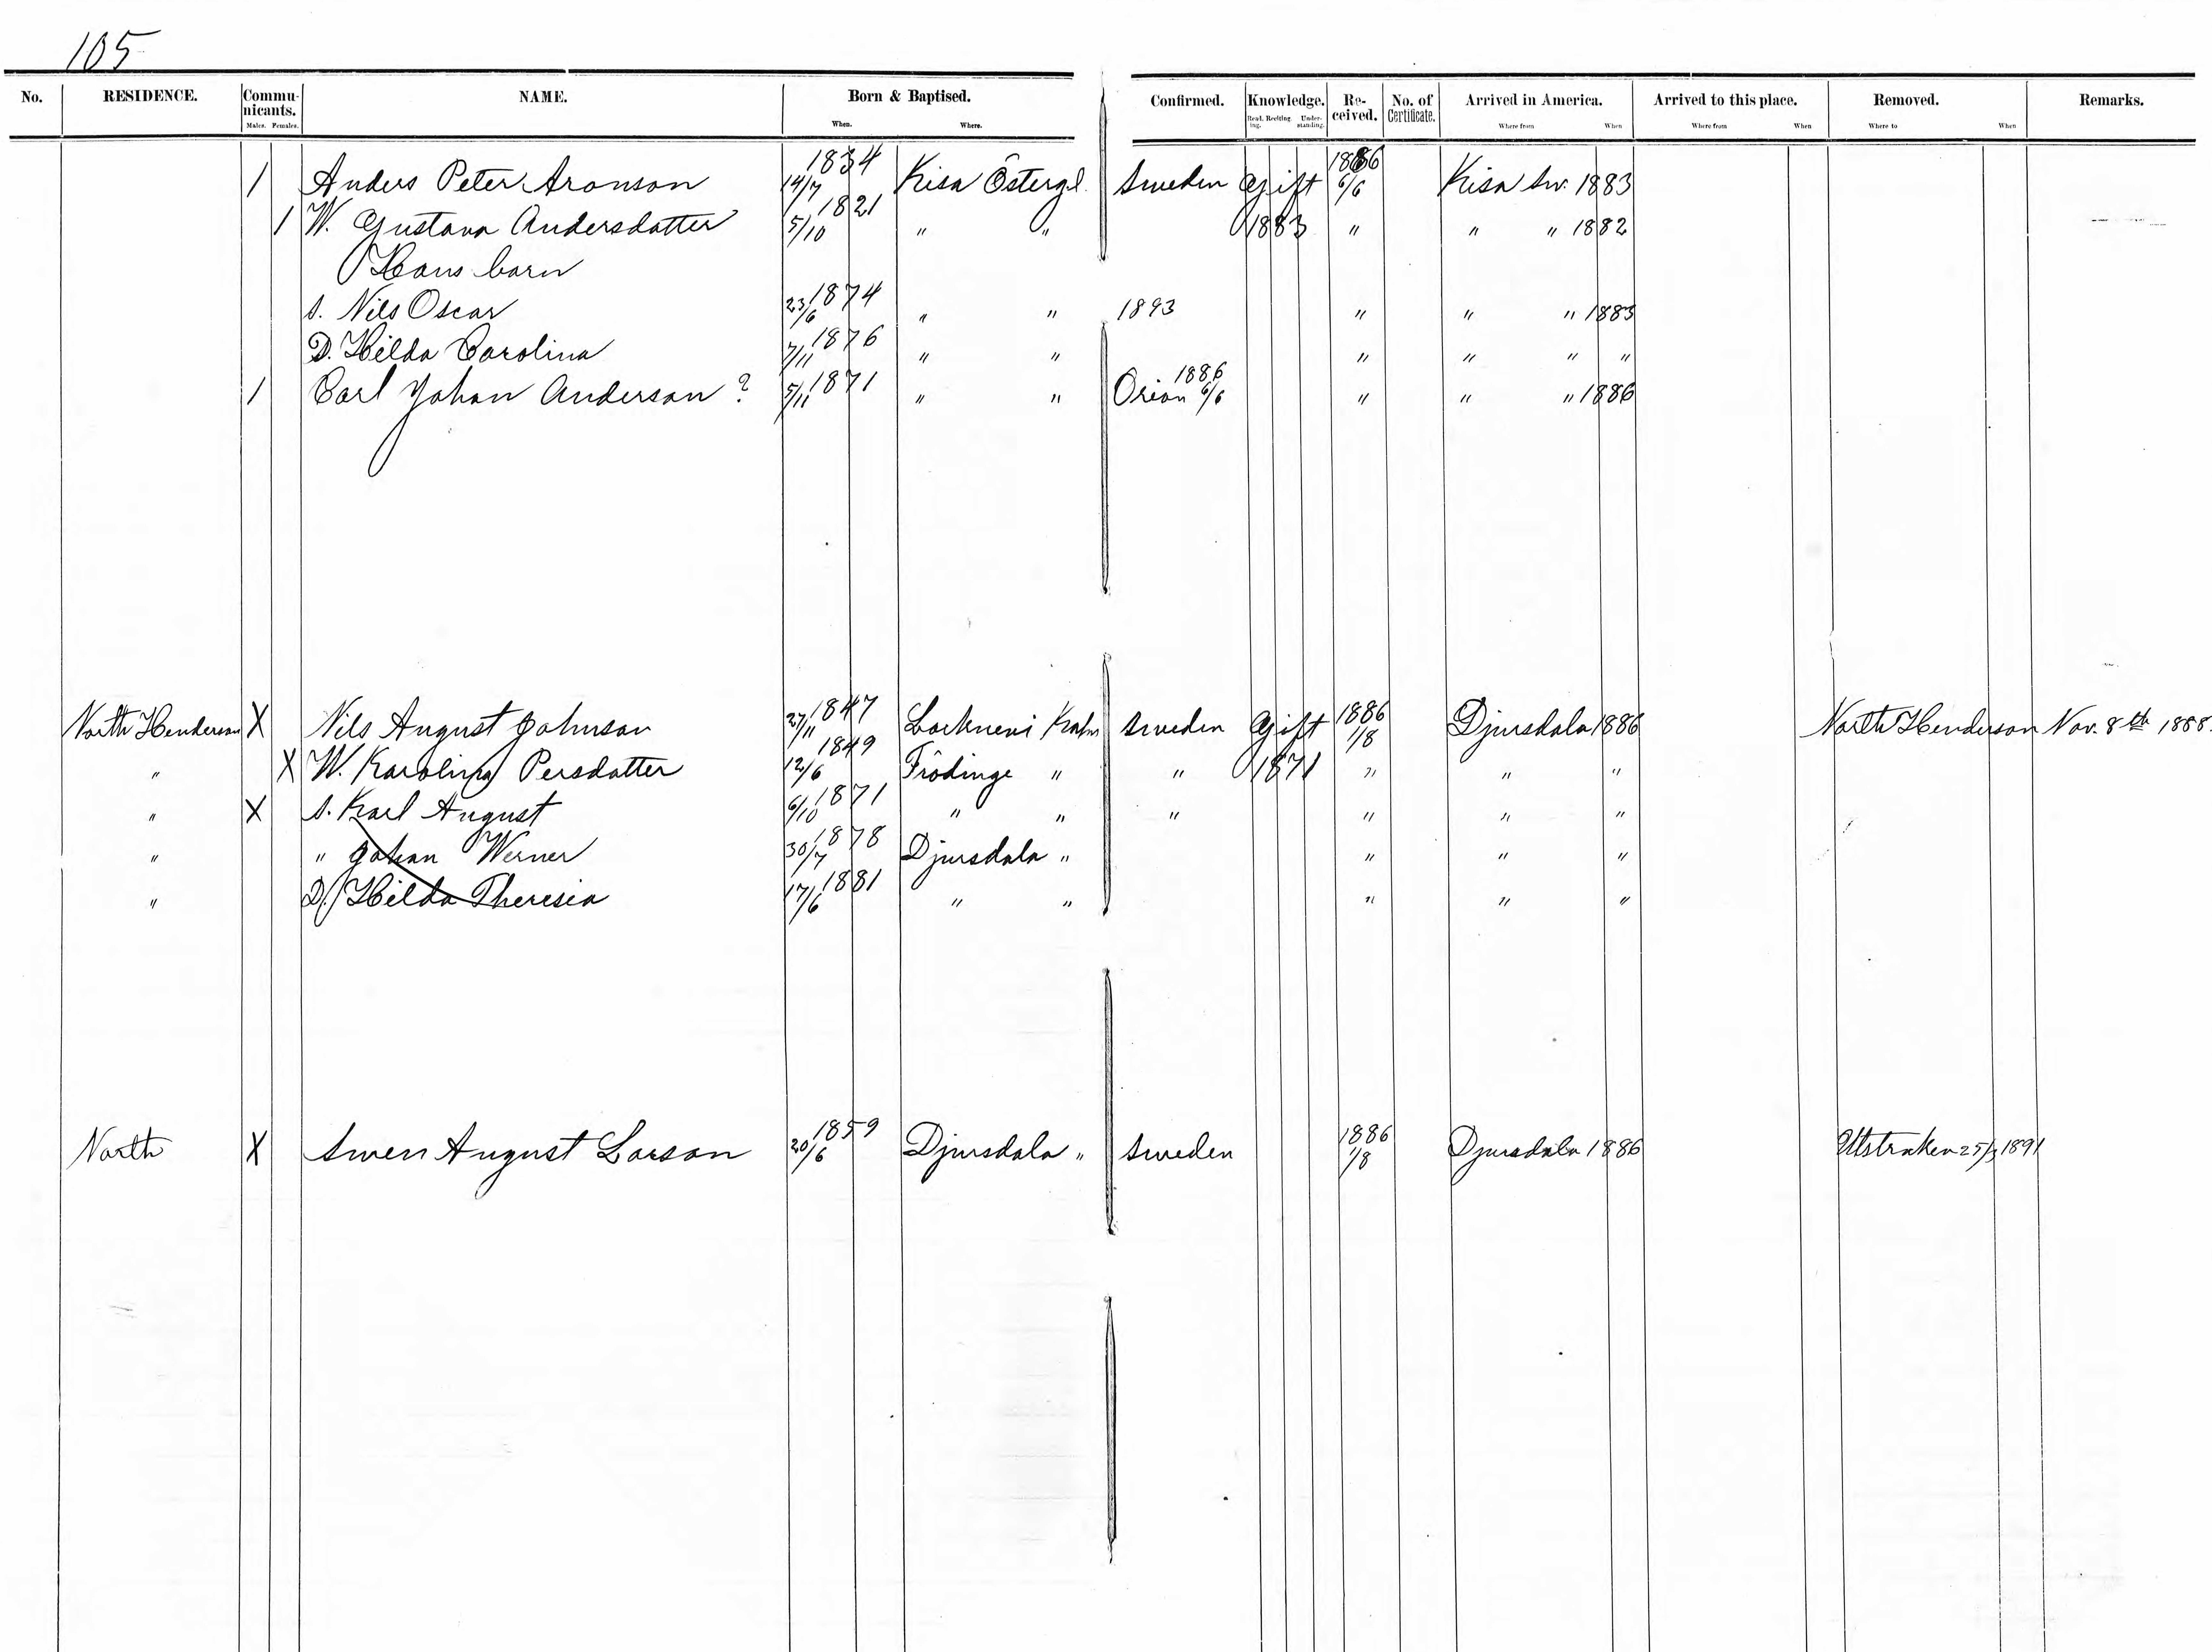 105
No. RESIDENCE. Commu-nicants. NAME. Born & Baptised. Confirmed. Knowledge. Re-ceived. No. of Certificate. Arrived in America. Arrived to this place. Removed. Remarks.
Males. Females. When. Where. Read-ing. Reciting. Under-standing. Where from When Where from When Where to When
/ Anders Peter Aronson 1834 14/7 Kisa Östergl. Sweden Gift 1886 6/6 Kisa Sw. 1883
/ W. Gustava Andersdotter 1821 5/10 " " 1883 " " " 1882
Hans barn
S. Nils Oscar 1874 23/6 " " 1893 " " " 1883
D. Hilda Carolina 1876 7/11 " " " " " "
/ Carl Johan Anderson ? 1871 5/11 " " Orion 1886 6/6 " " " 1886
North Henderson X Nils August Johnson 1847 27/11 Locknevi Sweden Gift 1886 1/8 Djursdala 1886 North Henderson Nov. 8th 1888.
" X W. Karolina Persdotter 1849 12/6 Frödinge " " 1871 " " "
" X S. Karl August 1871 6/10 " " " " " "
" " Johan Werner 1878 30/7 Djursdala " " " "
" D. Hilda Theresia 1881 17/6 " " " " "
North X Swen August Larson 1859 20/6 Djursdala " Sweden 1886 1/8 Djursdala 1886 Utstruken 25/3 1891